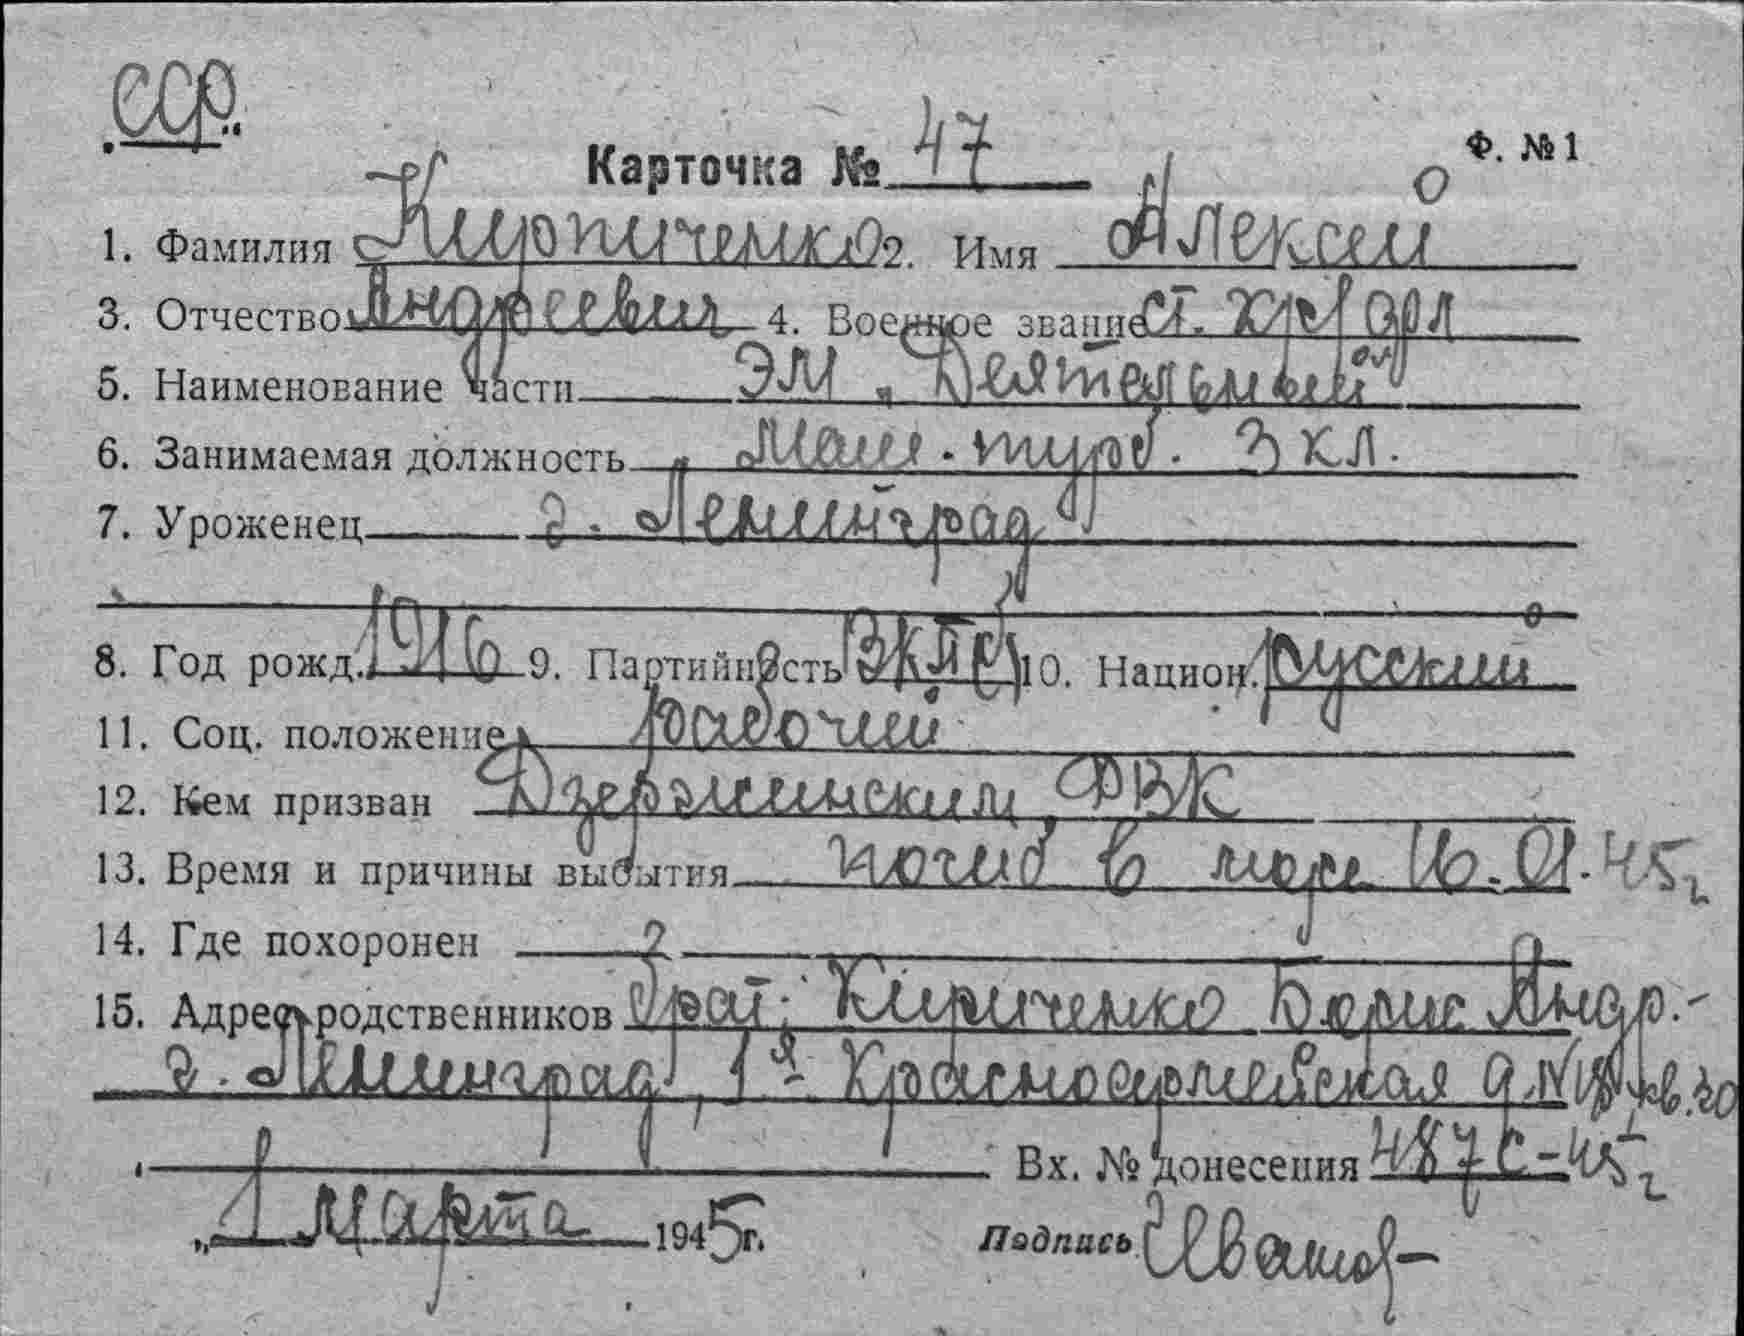 ССР.
Карточка № 47 Ф. № 1
1. Фамилия Кирпиченко 2. Имя Алексей
3. Отчество Андреевич 4. Военное звание ст. кр/фл
5. Наименование части ЭМ „Деятельный"
6. Занимаемая должность маш. турб. 3 кл.
7. Уроженец г. Ленинград
8. Год рожд. 1916 9. Партийность ВКП(б) 10. Национ. русский
11. Соц. положение рабочий
12. Кем призван Дзержинским РВК
13. Время и причины выбытия погиб в море 16.01.45г
14. Где похоронен
15. Адрес родственников брат: Кириченко Борис Андр.-
г. Ленинград, 1я- Красноармейская д. № кв. 30
Вх. № донесения 487с-45г
„1 марта 1945г. Подпись